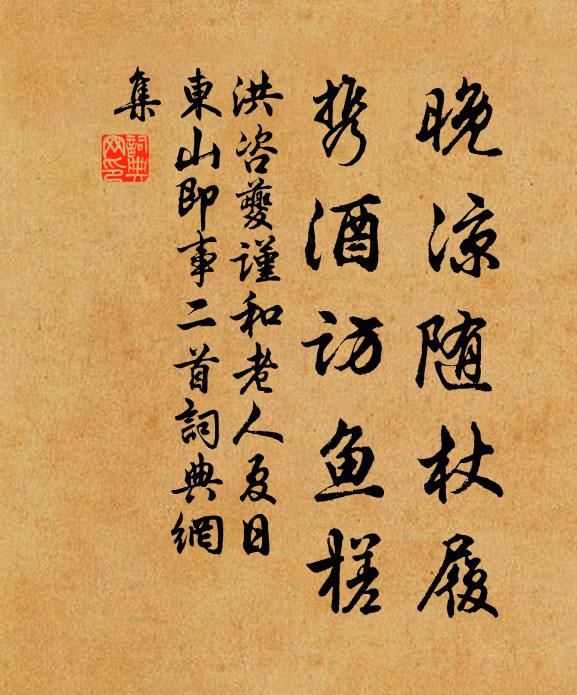 晚凉随杖屦
携酒访鱼槎
洪咨夔谨和老人夏日
東山即事二首詞典網
集
詞典
网印